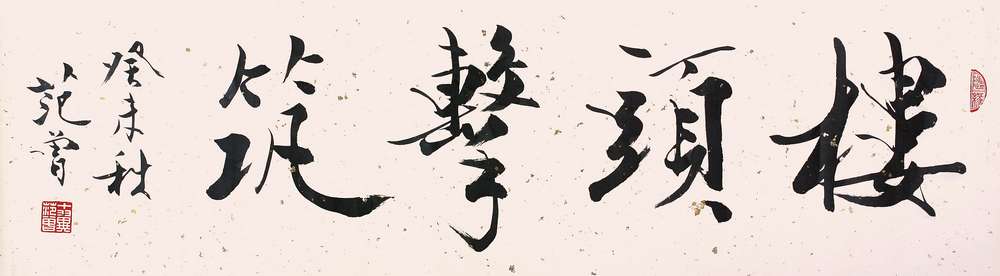 樓頭擊筑
癸未秋
范曾